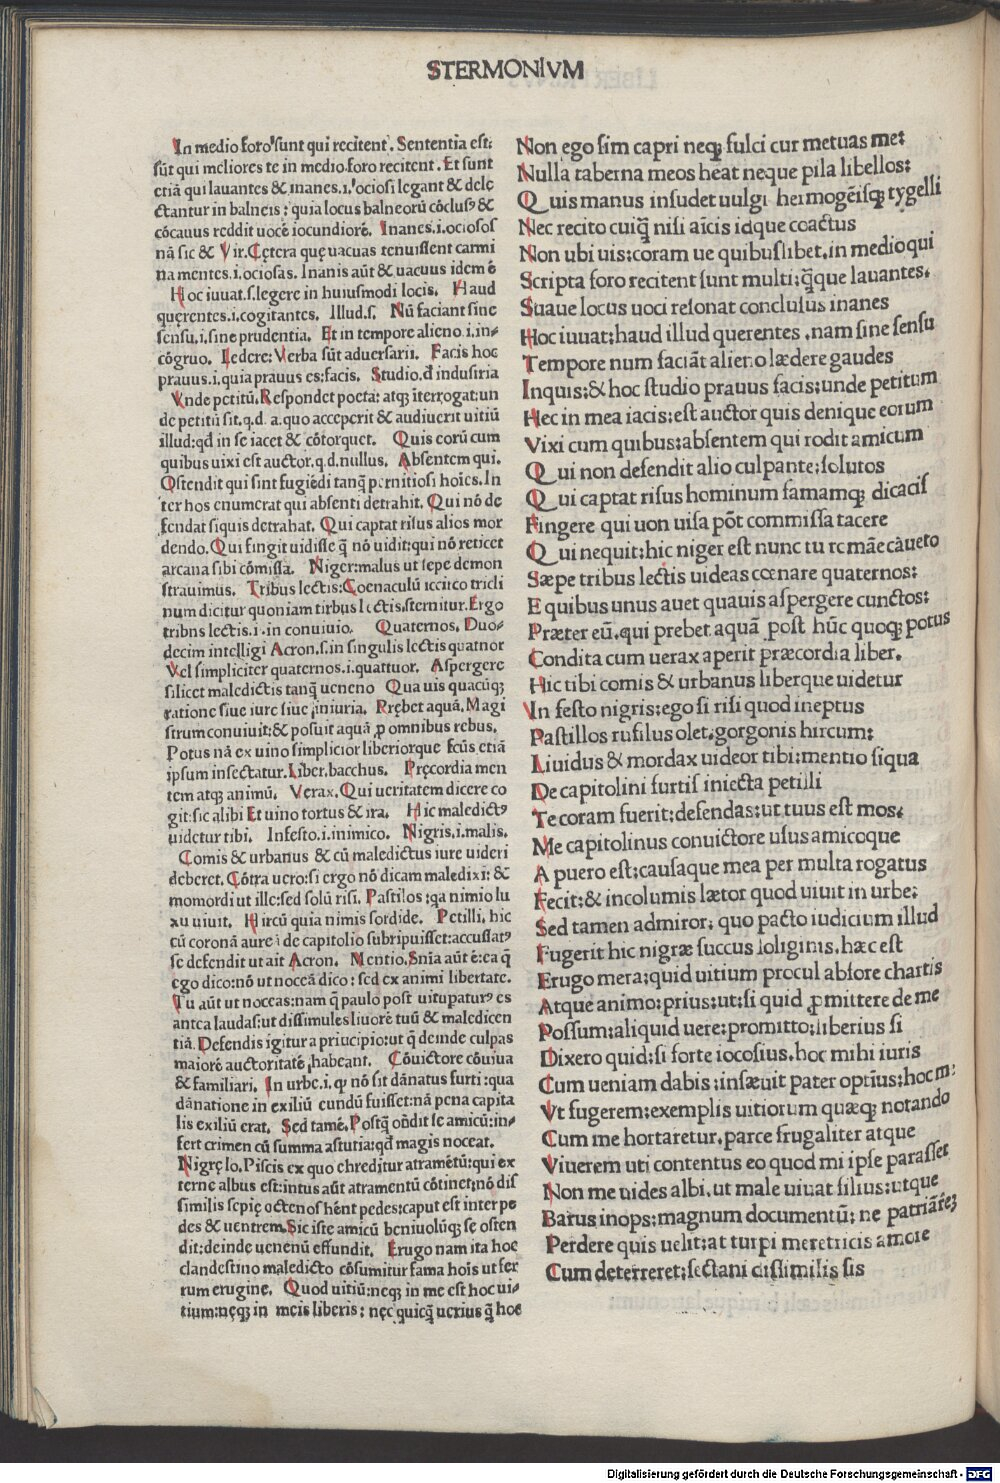 STERMONIVM
In medio foro sunt qui recitent. Sententia est:
sūt qui meliores te in medio foro recitent. Et sunt
etiā qui lauantes & inanes .i. ociosi legant & delę
ctantur in balneis: quia locus balneorū cōclusꝰ &
cōcauus reddit uocē iocundiorē. Inanes .i. ociosos
nā sic & Vir. Cętera quę uacuas tenuissent carmi
na mentes .i. ociosas. Inanis aūt & uacuus idem ē
Hoc iuuat .s. legere in huiusmodi locis. Haud
quęrentes .i. cogitantes. Illud .s. Nū faciant sine
sensu .i. sine prudentia. Et in tempore alieno .i. in-
cōgruo. Ledere: Verba sūt aduersarii. Facis hoc
prauus .i. quia prauus es: facis. Studio. đ industria
Vnde petitū. Respondet poeta: atqꝫ īterrogat: un
de petitū sit. q.d. a quo acceperit & audiuerit uitiū
illud: qđ in se iacet & cōtorquet. Quis eorū cum
quibus uixi est auctor. q.d. nullus. Absentem qui.
Ostendit qui sint fugiēdi tanq̄ pernitiosi hoīes. In
ter hos enumerat qui absenti detrahit. Qui nō de
fendat siquis detrahat. Qui captat risus alios mor
dendo. Qui fingit uidisse q̄ nō uidit: qui nō reticet
arcana sibi cōmissa. Niger: malus ut sepe demon
strauimus. Tribus lectis: Coenaculū iccirco tricli
num dicitur quoniam tirbus lectis sternitur. Ergo
tribns lectis .i. in conuiuio. Quaternos. Duo-
decim intelligi Acron. s. in singulis lectis quatnor
Vel simpliciter quaternos .i. quattuor. Aspergere
s.ilicet maledictis tanq̄ ueneno Qua uis quacūqꝫ
ratione siue iure siue iniuria. Prębet aquā. Magi
strum conuiuit: & posuit aquā ꝓ omnibus rebus.
Potus nā ex uino simplicior liberiorque fcūs etiā
ipsum insectatur. Liber. bacchus. Pręcordia men
tem atqꝫ animū. Verax. Qui ueritatem dicere co
git: sic alibi Et uino tortus & ira. Hic maledictꝰ
uidetur tibi. Infesto .i. inimico. Nigris .i. malis.
Comis & urbanus & cū maledictus iure uideri
deberet. Cōtra uero: si ergo nō dicam maledixi: &
momordi ut ille: sed solū risi. Pastilos: qa nimio lu
xu uiuit. Hircū quia nimis sordide. Petilli, hic
cū coronā aureā de capitolio subripuisset: accusatꝰ
se defendit ut ait Acron. Mentio. Snīa aūt ē: ea q̄
ego dico: nō ut noceā dico: sed ex animi libertate.
Tu aūt ut noceas: nam q̄ paulo post uitupaturꝰ es
antea laudas: ut dissimules liuorē tuū & maledicen
tiā. Defendis igitur a priucipio: ut q̄ deinde culpas
maiorē auctoritatē habeant. Cōuictore cōuiua
& familiari. In urbe .i. qꝫ nō sit dānatus furti: qua
dānatione in exiliū eundū fuisset: nā pena capita
lis exiliū erat. Sed tamē. Postq̄ oñdit se amicū: in-
fert crimen cū summa astutia: qđ magis noceat.
Nigrę lo. Piscis ex quo ehreditur atramētū: qui ex
terne albus est: intus aūt atramentū cōtinet: nō dis
similis sepię octenos hēnt pedes: caput est inter pe
des & uentrem. Sic iste amicū beniuolūqꝫ se osten
dit: deinde uenenū effundit. Erugo nam ita hoc
clandestino maledicto cōsumitur fama hoīs ut fer
rum erugine. Quod uitiū: neqꝫ in me est hoc ui-
tium: nęqꝫ in meis liberis: nęc quicq̄ uerius q̄ hoc
Non ego sim capri neqꝫ sulci cur metuas me:
Nulla taberna meos heat neque pila libellos:
Quis manus insudet uulgi hermogēisqꝫ tygelli
Nec recito cuiq̄ nisi aīcis idque coactus
Non ubi uis: coram ue quibuslibet. in medio qui
Scripta foro recitent sunt multi: q̄que lauantes.
Suaue locus uoci resonat conclusus inanes
Hoc iuuat: haud illud querentes. nam sine sensu
Tempore num faciāt alieno lædere gaudes
Inquis: & hoc studio prauus facis: unde petitum
Hec in mea iacis: est auctor quis denique eorum
Vixi cum quibus: absentem qui rodit amicum
Qui non defendit alio culpante: solutos
Qui captat risus hominum famamqꝫ dicacis
Fingere qui uon uisa pōt commissa tacere
Qui nequit: hic niger est nunc tu romāe cāueto
Sæpe tribus lectis uideas cœnare quaternos:
E quibus unus auet quauis aspergere cunctos:
Præter eū. qui prebet aquā post hūc quoqꝫ potus
Condita cum uerax aperit præcordia liber.
Hic tibi comis & urbanus liberque uidetur
In festo nigris: ego si risi quod ineptus
Pastillos rufilus olet. gorgonis hircum:
Liuidus & mordax uideor tibi: mentio siqua
De capitolini furtis iniecta petilli
Te coram fuerit: defendas: ut tuus est mos:
Me capitolinus conuictore usus amicoque
A puero est: causaque mea per multa rogatus
Fecit: & incolumis lætor quod uiuit in urbe:
Sed tamen admiror: quo pacto iudicium illud
Fugerit hic nigræ succus loliginis. hæc est
Erugo mera: quid uitium procul abfore chartis
Atque animo: prius: ut: si quid ꝓmittere de me
Possum: aliquid uere: promitto: liberius si
Dixero quid: si forte iocosius. hoc mihi iuris
Cum ueniam dabis: insæuit pater optīus: hoc m:
Vt fugerem: exemplis uitiorum quæqꝫ notando
Cum me hortaretur. parce frugaliter atque
Viuerem uti contentus eo quod mi ipse parasset
Non me uides albi. ut male uiuat filius: utque
Barus inops: magnum documentū: ne patriā rēꝫ
Perdere quis uelit: at turpi meretricis amore
Cum deterreret: sectani dissimilis sis
Digitalisierung gefördert durch die Deutsche Forschungsgemeinschaft - DFG